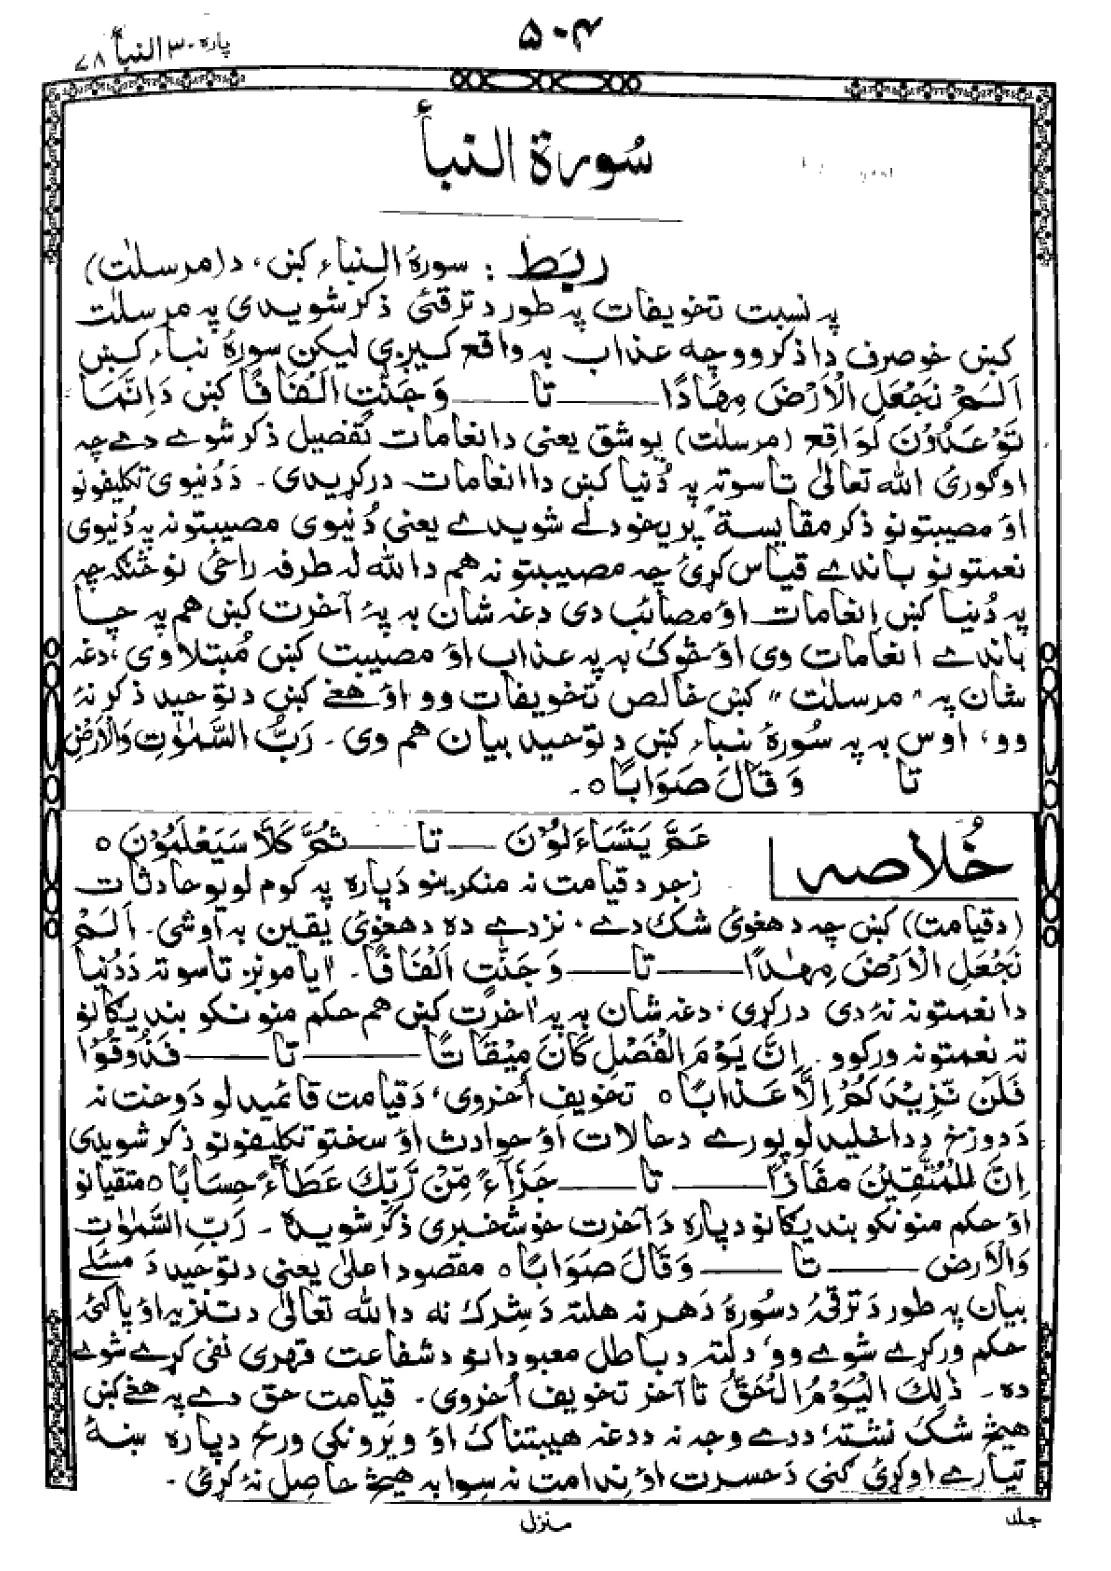 پاره ٣٠ النبأ ٧٨
٥٠٤
سُورة النبأ
ربَط : سورۀ النباء کښ، د (مرسلٰت)
په نسبت تخویفات په طور د ترقئ ذکر شویدی په مرسلٰت
کښ خو صرف دا ذکر وو چه عذاب به واقع کیږی لیکن سورۀ نباء کښ
اَلَمْ نَجْعَلِ الْاَرْضَ مِهَادًا —— تا —— وَجَنّٰتٍ اَلْفَافًا کښ دَ اِنَّمَا
تُوْعَدُوْنَ لَوَاقِع (مرسلٰت) یو شق یعنی د انعامات تفصیل ذکر شوے دے چه
اوګورئ الله تعالیٰ تاسوته په دُنیا کښ دا انعامات درکړیدی۔ دَ دُنیوی تکلیفونو
اوْ مصیبتونو ذکر مقایسةً پریخودلے شویدے یعنی دُنیوی مصیبتونه په دُنیوی
نعمتونو باندے قیاس کړئ چه مصیبتونه هم د الله له طرفه راځی نو څنګه چه
په دُنیا کښ اِنعامات اوْ مصائب دی دغه شان به پۀ آخرت کښ هم په چا
باندے انعامات وی اوْ څوک به په عذاب اوْ مصیبت کښ مُبتلا وی، دغه
شان په "مرسلٰت" کښ خالص تخویفات وو اوْ هغے کښ د توحید ذکر نۀ
وو، اوس به په سُورۀ نباء کښ د توحید بیان هم وی۔ رَبُّ السَّمٰوٰتِ وَالْاَرْضِ
تا وَقَالَ صَوَابًا ٥۔
خُلاصه
عَمَّ يَتَسَاءَلُوْنَ —— تا —— ثُمَّ كَلَّا سَيَعْلَمُوْنَ ٥
زجر د قیامت نه منکرینو دَپاره په کوم لویو حادثات
(د قیامت) کښ چه د هغوئ شک دے، نزدے ده د هغوئ یقین به اوشی۔ اَلَمْ
نَجْعَلِ الْاَرْضَ مِهٰدًا —— تا —— وَجَنّٰتٍ اَلْفَافًا۔ آیا مونږ تاسوته دَ دُنیا
دا نعمتونه نۀ دی درکړی، دغه شان به په اٰخرت کښ هم حکم منونکو بندیګانو
ته نعمتونه ورکوو۔ اِنَّ يَوْمَ الْفَصْلِ كَانَ مِيْقَاتًا —— تا —— فَذُوْقُوْا
فَلَنْ نَّزِيْدَكُمْ اِلَّا عَذَابًا ٥ تخویفِ اُخروی، دَ قیامت قائمیدلو دَ وخت نه
دَ دوزخ د داخلیدلو پورے د حالات اوْ حوادث اوْ سختو تکلیفونو ذکر شویدی
اِنَّ لِلْمُتَّقِيْنَ مَفَازًا —— تا —— جَزَآءً مِّنْ رَّبِّكَ عَطَآءً حِسَابًا ٥ متقیانو
اوْ حکم منونکو بندیګانو دپاره دَ آخرت خوشخبری ذکر شویده۔ رَبِّ السَّمٰوٰتِ
وَالْاَرْضِ —— تا —— وَقَالَ صَوَابًا ٥ مقصود اعلیٰ یعنی د توحید دَ مسئلے
بیان په طور دَ ترقئ د سُورۀ دَهر نه هلته دَ شرک نه د الله تعالیٰ د تنزیه اوْ پاکئ
حکم ورکړے شوے وو، دلته د باطل معبودانو د شفاعت قهری نفی کړے شوے
ده۔ ذٰلِكَ الْيَوْمُ الْحَقُّ تا آخر تخویف اُخروی۔ قیامت حق دے په هغے کښ
هیڅ شک نشته، د دے وجه نه د دغه هیبتناک اوْ ویرونکی ورځ دپاره ښۀ
تیارے اوکړئ ګنی دَ حسرت اوْ ندامت نه سوا به هیڅ حاصل نۀ کړئ۔
جلد
منزل